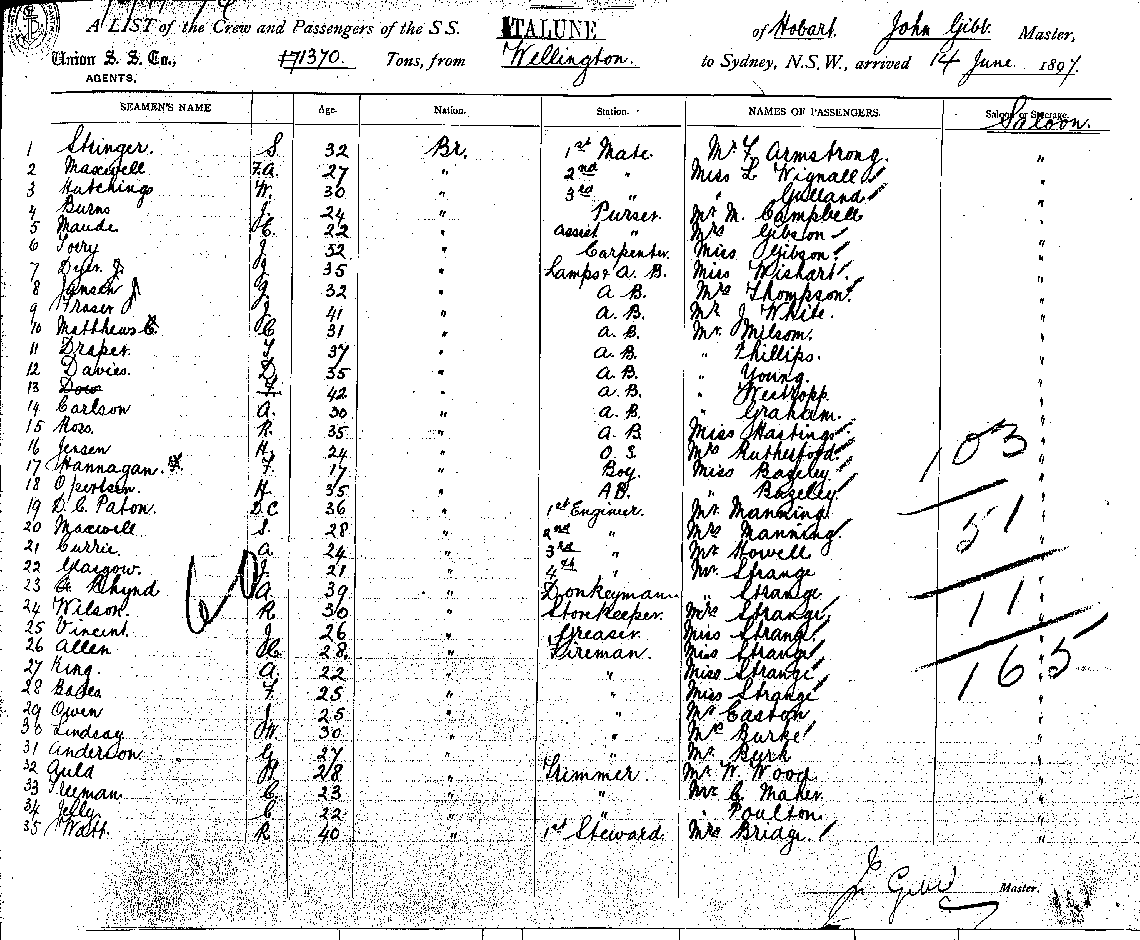 A LIST of the Crew and Passengers of the S.S. TALUNE of Hobart. John Gibb Master,
Union S. S. Co., AGENTS, 1370. Tons, from Wellington. to Sydney, N.S.W., arrived 14 June. 1897.
SEAMEN'S NAME Age. Nation. Station. NAMES OF PASSENGERS. Saloon or Steerage.
Saloon.
1 Stringer. S 32 Br. 1st Mate. Mr Armstrong.
2 Maxwell F.A. 27 " 2nd " Miss L Wignall "
3 Hutchings W. 30 " 3rd " Gulland "
4 Burns J. 24 " Purser. Mr M. Campbell "
5 Maude 22 " Assist " Mrs Gibson "
6 J 52 " Carpenter. Miss Gibson "
7 Dyer. J. J 35 " Lamps & A. B. Miss Wishart "
8 Jansen J 32 " A. B. Mrs Thompson "
9 Fraser J J 41 " A. B. Mr J White. "
10 Matthews C. C 31 " A. B. Mr. Milsom. "
11 Draper. 37 " A. B. " Phillips. "
12 Davies. D. 35 " A. B. " Young. "
13 Dow 42 " A. B. " Westropp. "
14 Carlson A. 30 " A. B. " Graham. "
15 Ross. R. 35 " A. B. Miss Hastings "
16 Jensen H. 24 " O. S. Mrs Rutherford "
17 Hannagan. F. 17 " Boy. Miss Bazeley "
18 H. 35 " AB. " Bazeley "
19 D. C. Paton. D.C 36 " 1st Engineer. Mr. Manning. "
20 Maxwell S. 28 " 2nd " Mrs Manning. "
21 Currie. A. 24 " 3rd " Mr. Howell "
22 Glasgow. J. 21 " 4th " Mr. Strange "
23 Rhynd A. 39 " Donkeyman. " Strange "
24 Wilson. R. 30 " Storekeeper. Mrs Strange "
25 Vincent. J 26 " Greaser. Miss Strange "
26 Allen 28. " Fireman. Miss Strange "
27 King. A. 22 " " Miss Strange "
28 F. 25 " " Miss Strange "
29 Owen J 25 " " Mr Easton "
30 Lindsay W. 30 " " Mrs Burke "
31 Anderson G. 27 " " Mr. Burk "
32 Auld 28 " Trimmer. Mr W. Wood "
33 Freeman C. 23 " " Mr. C. Maher "
34 Jelly C 22 " " " Poulton "
35 Watt. R. 40 " 1st Steward. Mrs Bridge. "
60
103
51
11
165
J. Gibb Master.